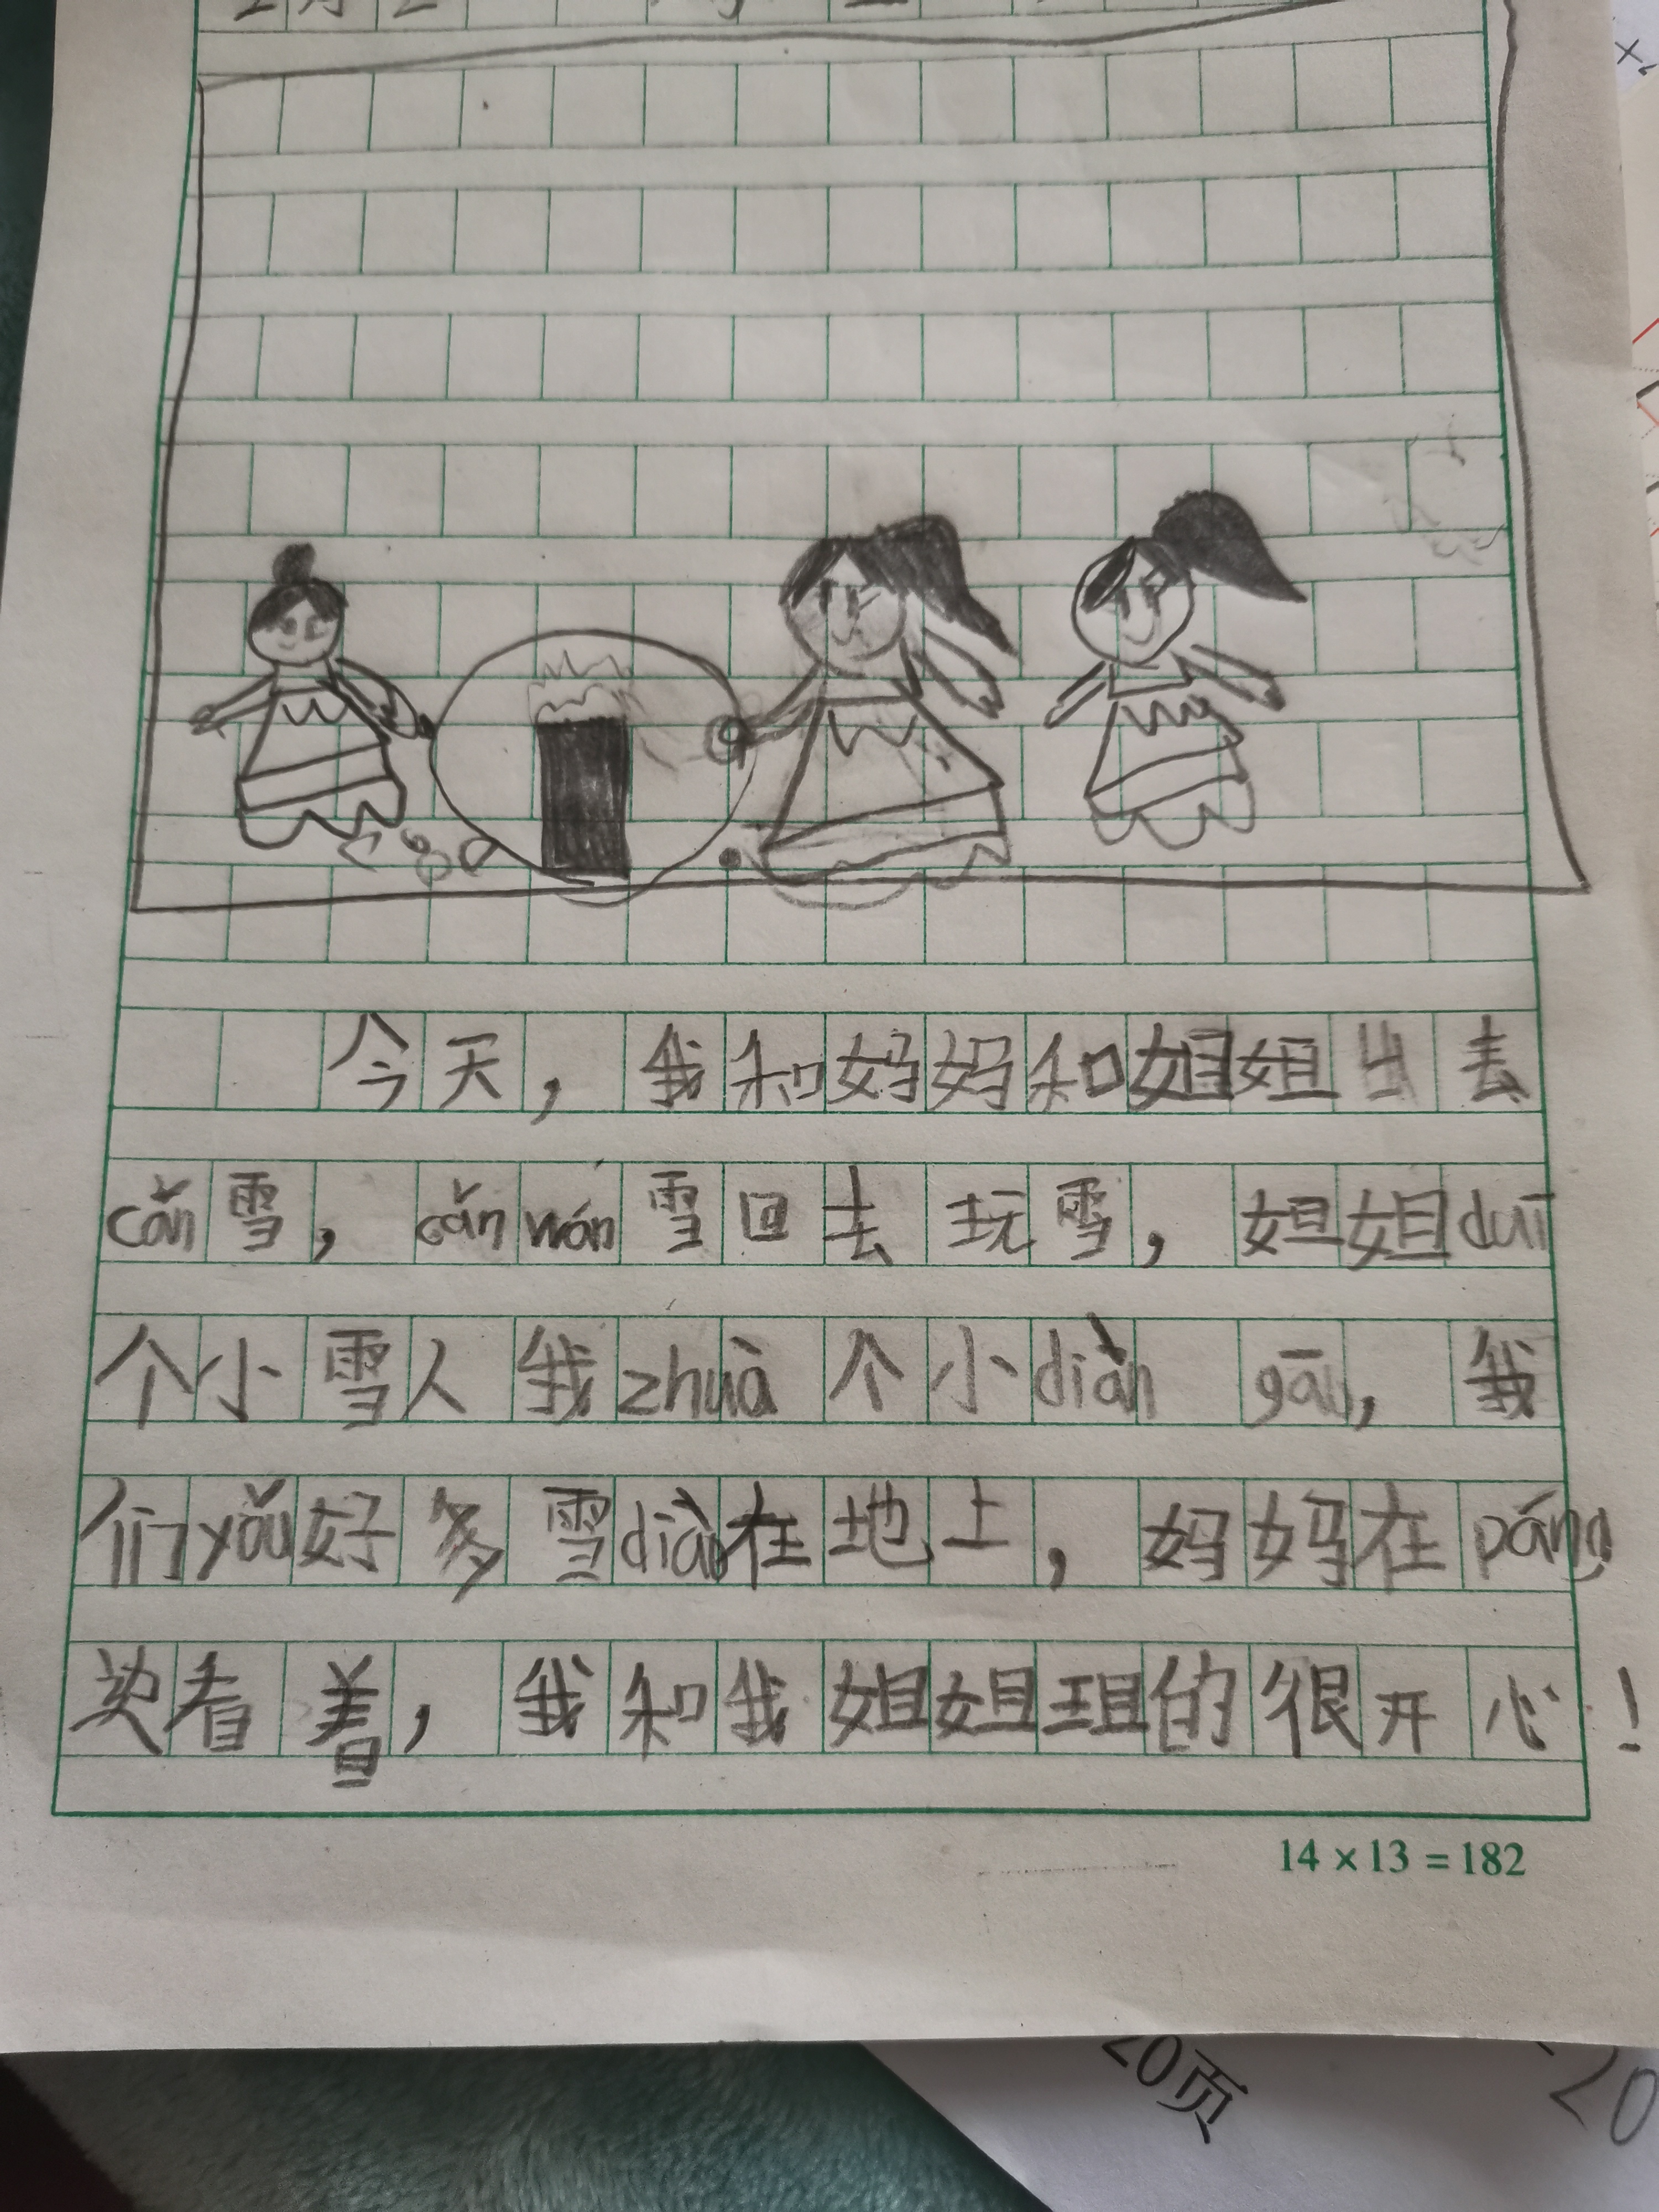 今天，我和妈妈和姐姐出去
cǎn雪，cǎn wán雪回去玩雪，姐姐duī
个小雪人我zhuà个小diàn gāo，我
们yǒu好多雪diào在地上，妈妈在páng
边看着，我和我姐姐玩的很开心！
14×13=182
20页
20